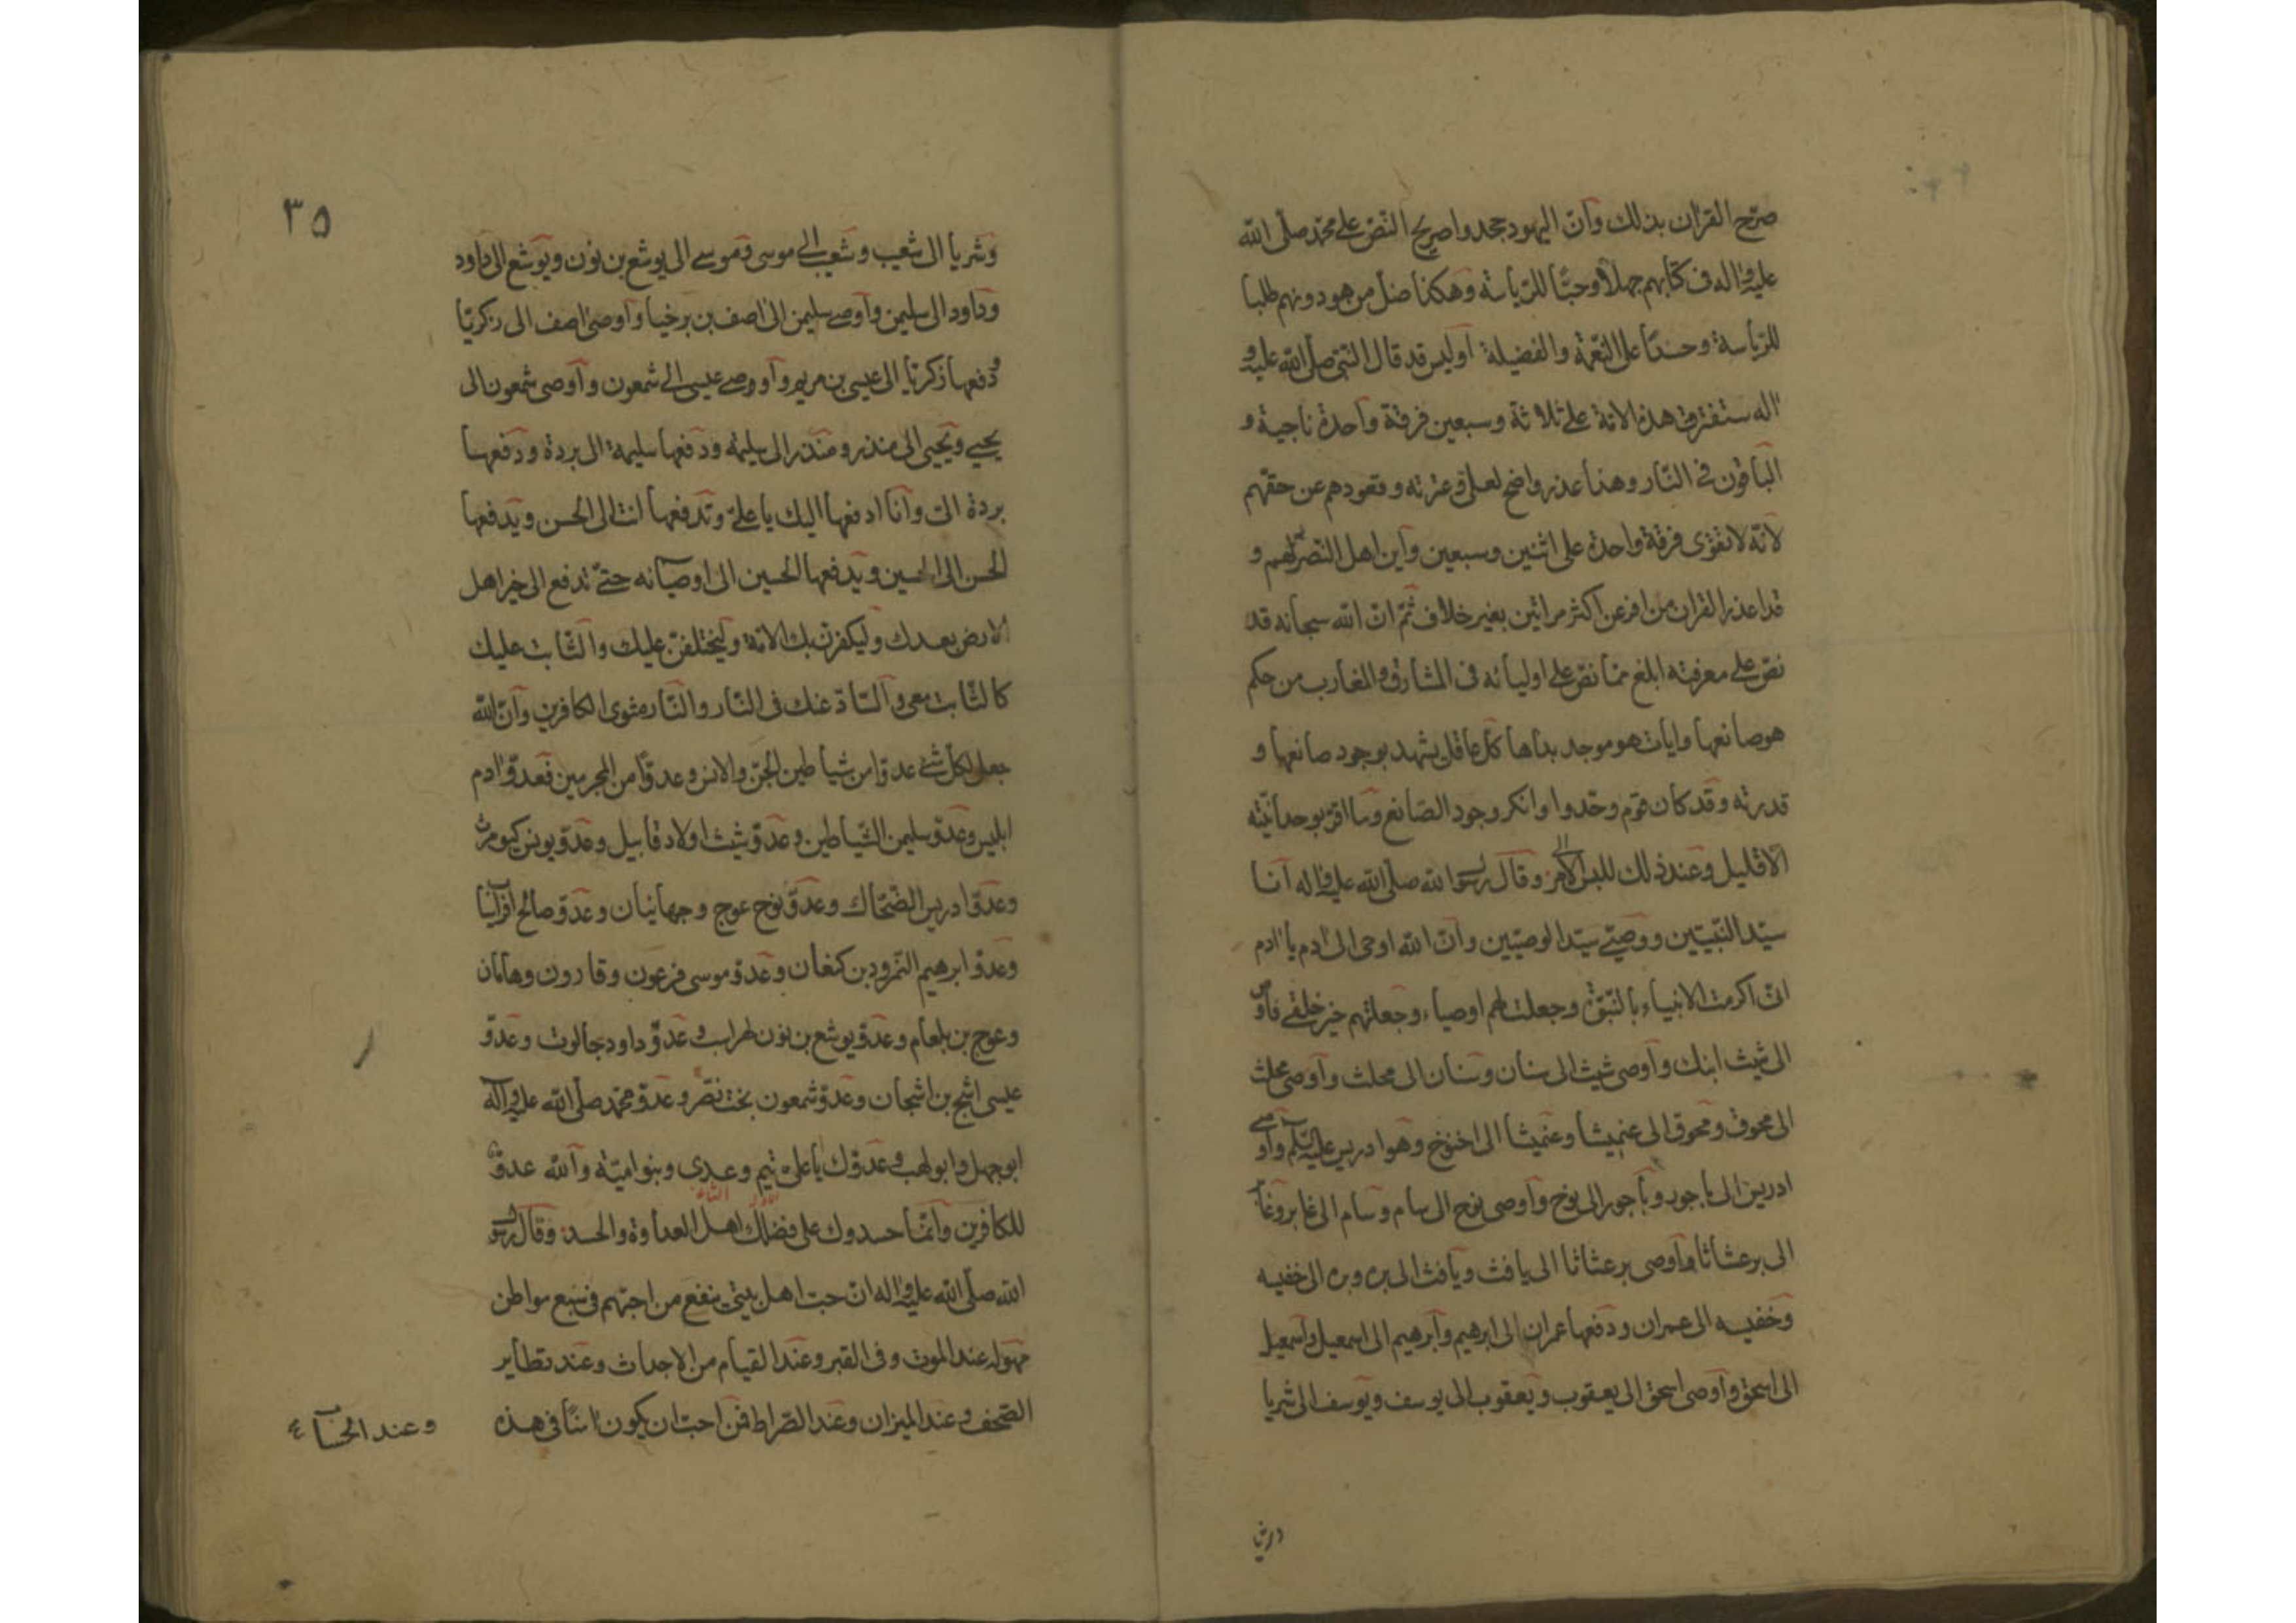 صرّح القران بذلك وانّ اليهود جحدوا صريح النّص على محمّد صلّى الله
عليه واله في كتابهم جهلا وحبّا للرّياسة وهكذا ضلّ من هو دونهم طلبا
للرّياسة وحسدًا على النّعمة والفضيلة اوليس قد قال النّبيّ صلّى الله عليه و
اله ستفترق هذه الامّة على ثلاثة وسبعين فرقة واحدة ناجية و
الباقون في النّار وهذا عذر واضح لعليّ وعترته وقعودهم عن حقّهم
لانّه لا تقوى فرقة واحدة على اثنين وسبعين واين اهل النّصر لهم و
قد اعذر القران من افر عن اكثر من اثنين بغير خلاف ثمّ انّ الله سبحانه قد
نصّ على معرفته ابلغ ممّا نصّ على اوليائه في المشارق والمغارب من حكم
هو صانعها وايات هو موجد بداها كلّ عاقل يشهد بوجود صانعها و
قدرته وقد كان قوم وحّدوا وانكر وجود الصّانع وما اقرّ بوحدانيّته
الّا قليل وعند ذلك للبس الامر وقال رسول الله صلّى الله عليه واله انا
سيّد النّبيّين ووصيّي سيّد الوصيّين وانّ الله اوحى الى ادم يا ادم
انّي اكرمت الانبياء بالنّبوّة وجعلت لهم اوصياء وجعلتهم خير خلقي فاوص
الى شيث ابنك واوصى شيث الى سنان وسنان الى محلث واوصى محلث
الى محوق ومحوق الى عنميشا وعنميشا الى اخنوخ وهو ادريس عليه السّلم واوصى
ادريس الى ناجور وناجور الى نوح واوصى نوح الى سام وسام الى غابر وغابر
الى برعثاثا واوصى برعثاثا الى يافث ويافث الى بره وبره الى خفيسه
وخفيسه الى عمران ودفعها عمران الى ابرهيم وابرهيم الى اسمعيل واسمعيل
الى اسحق واوصى اسحق الى يعقوب ويعقوب الى يوسف ويوسف الى شريا
٣٥
وشريا الى شعيب وشعيب الى موسى وموسى الى يوشع بن نون ويوشع الى داود
وداود الى سليمن واوصى سليمن الى اصف بن برخيا واوصى اصف الى زكريّا
ودفعها زكريّا الى عيسى بن مريم واووصى عيسى الى شمعون واوصى شمعون الى
يحيى ويحيى الى منذر ومنذر الى سليمة ودفعها سليمة الى بردة ودفعها
بردة الىّ وانا ادفعها اليك يا علىّ وتدفعها انت الى الحسن ويدفعها
الحسن الى الحسين ويدفعها الحسين الى اوصيائه حتّى تدفع الى خير اهل
الارض بعدك وليكفرنّ بك الامّة وليختلفنّ عليك والثّابت عليك
كالثّابت معى والشّاذّ عنك فى النّار والنّار مثوى الكافرين وانّ الله
جعل لكلّ شئ عدوّا من شياطين الجنّ والانس وعدوّا من المجرمين فعدوّ ادم
ابليس وعدوّ سليمن الشّياطين وعدوّ شيث اولاد قابيل وعدوّ يونس كيومرث
وعدوّ ادريس الضّحّاك وعدوّ نوح عوج وجهانيان وعدوّ صالح افراسياب
وعدوّ ابرهيم النّمرود بن كنعان وعدوّ موسى فرعون وقارون وهامان
وعوج بن بلعام وعدوّ يوشع بن نون لهراسب وعدوّ داود جالوت وعدوّ
عيسى اشبح بن اشجان وعدوّ شمعون بخت نصّر وعدوّ محمّد صلّى الله عليه واله
ابوجهل وابولهب وعدوّك يا على تيم وعدى وبنو اميّة والله عدوّ
للكافرين وانّما حسدوك على فضلك اهل العداوة والحسد وقال رسول
الله صلّى الله عليه واله انّ حبّ اهل بيتى ينفع من احبّهم فى سبع مواطن
مهولة عند الموت وفى القبر وعند القيام من الاجداث وعند تطاير
الصّحف وعند الميزان وعند الصّراط فمن احبّ ان يكون امنا فى هذه
وعند الحساب